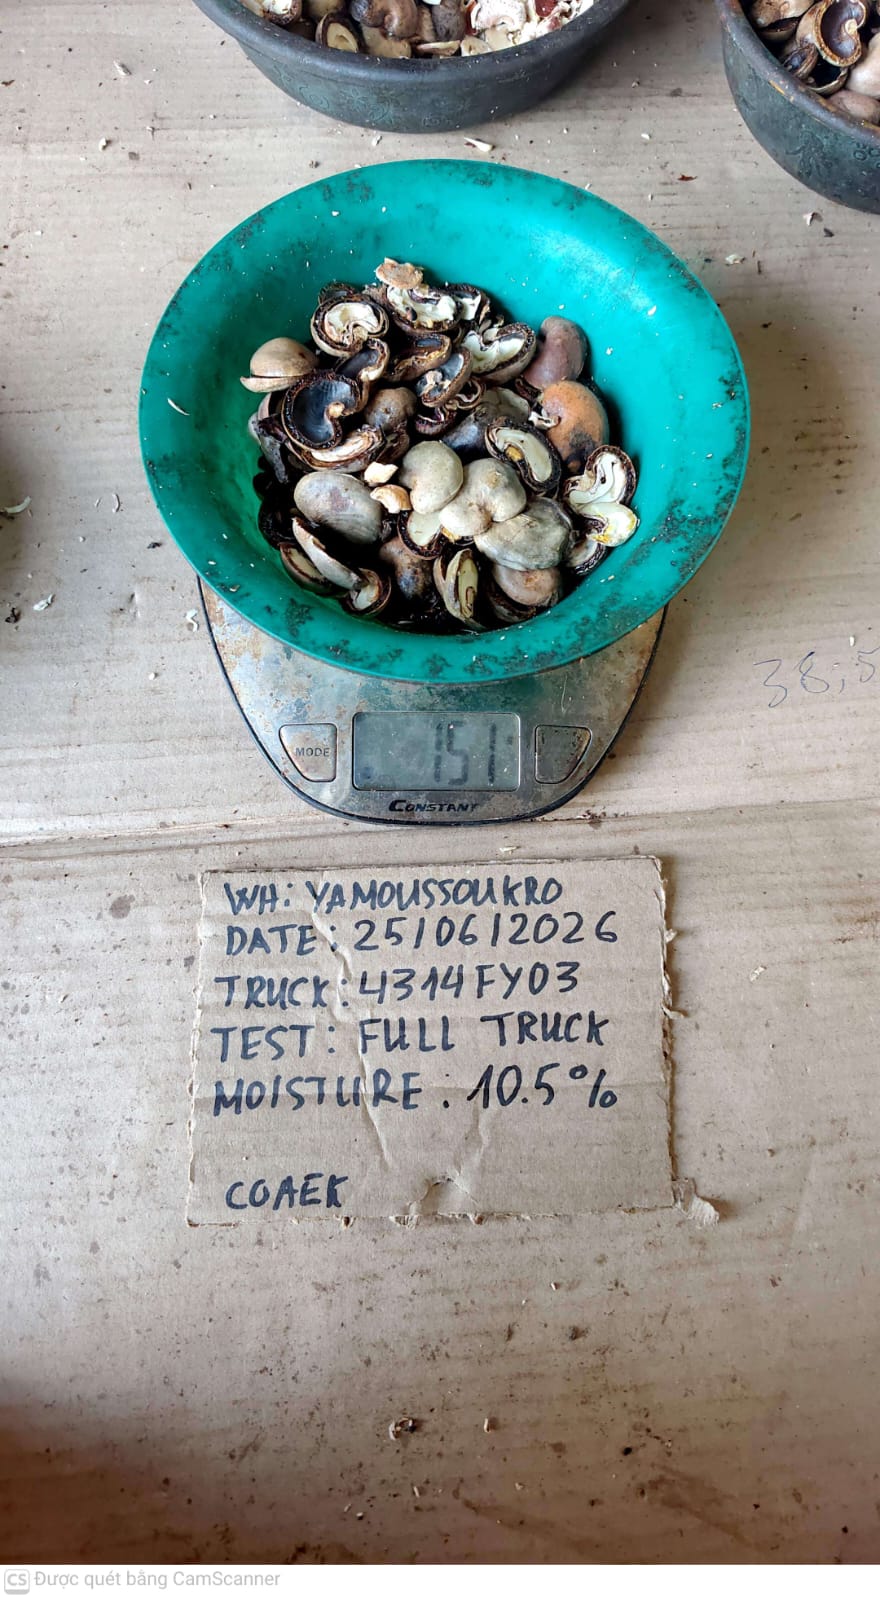 38,5
MODE
151
CONSTANT
WH: YAMOUSSOUKRO
DATE: 25/06/2026
TRUCK: 4314FY03
TEST: FULL TRUCK
MOISTURE: 10.5%
COAEK
CS Được quét bằng CamScanner